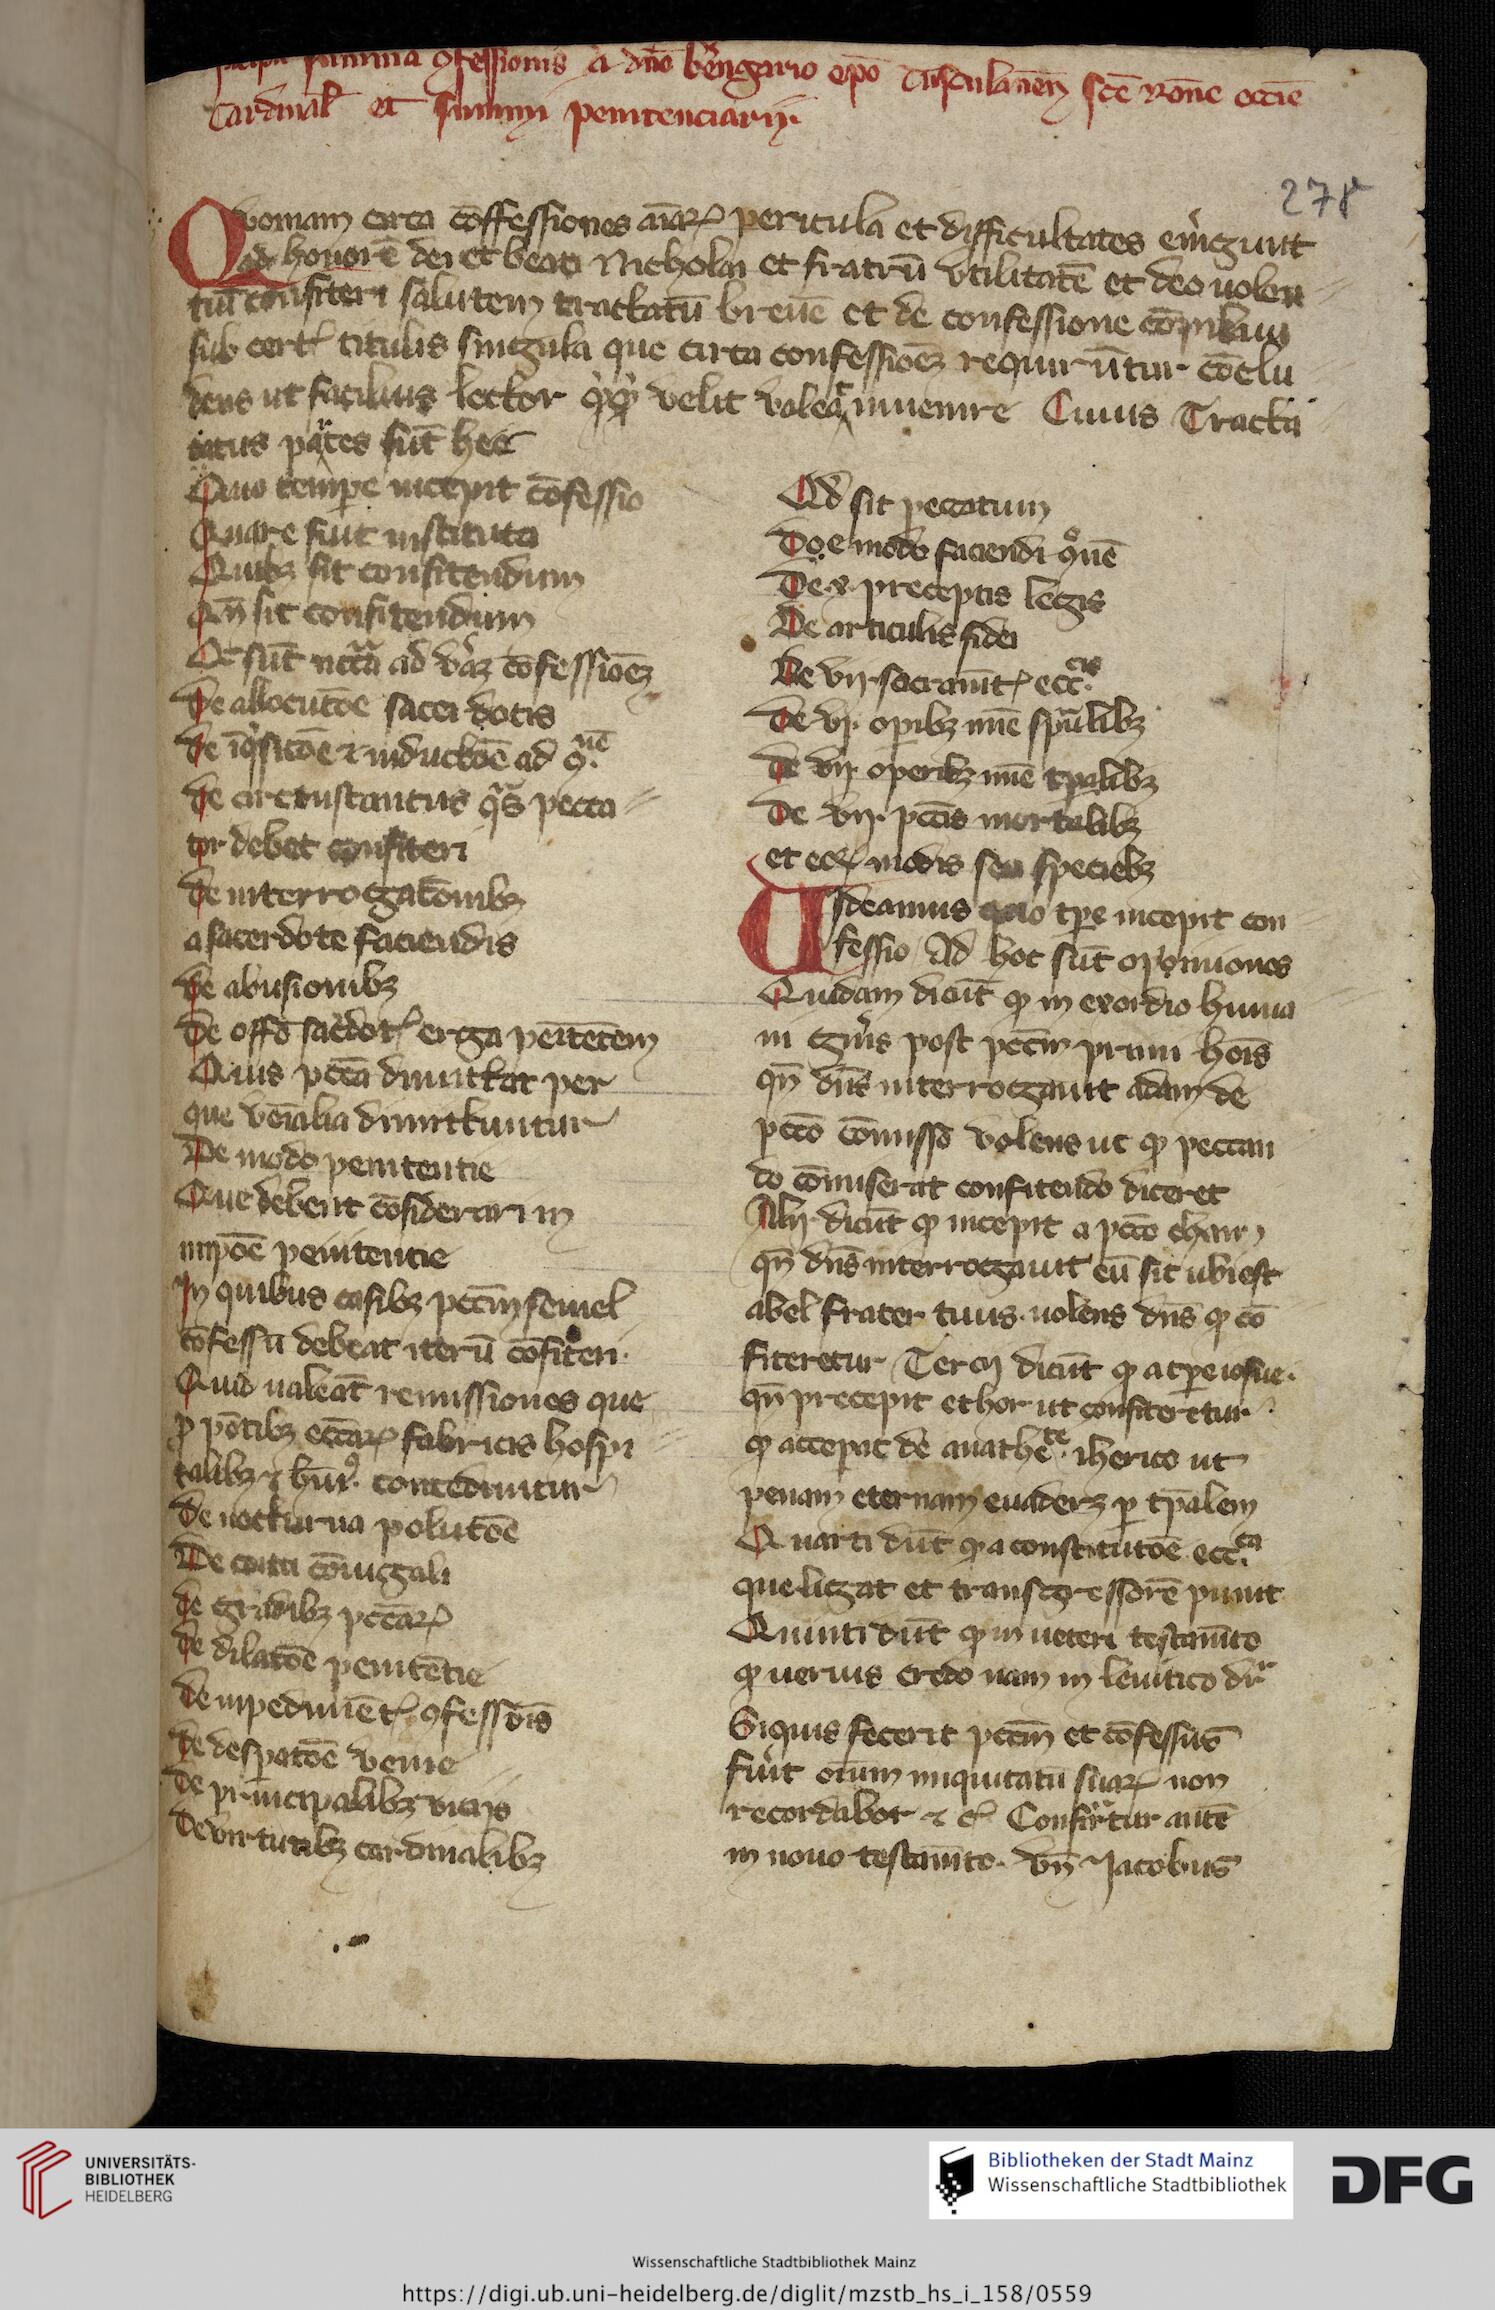 summa ꝯfessionis a dno berengario epo Tusculanen sce Rone eccie
Cardinal et summi penitenciarii.
278r
Quoniam circa cōffessiones aīaꝝ pericula et difficultates emergunt
ad honorē dei et beati Nicholai et fratrū vtilitatē et deo uolen
tiū confiteri salutem tractatū breuē et de confessione cōpilaui
sub cert titulis singula que circa confessioēȝ requirūtur cōclu
dens ut facilius lector velit valeat inuenire Cuius Tracta
tatus partes sūt hec
Quo tempe incepit cōfessio
Quare fuit instituta
Quibȝ sit confitendum
Qn̄ sit confitendum
sūt ncc̄ia ad verāȝ cōfessioēȝ
De allocutōe sacerdotis
de īq̇sitōe ⁊ inductōe ad
de circumstantiis qᵃs pecca
tor debet confiteri
de interrogatōnibȝ
a sacerdote faciendis
de abusionibȝ
De offō sacerdot erga penitētem
Quis pccā dimittat per
que venialia dimittuntur
De modo penitentie
Que debent cōsiderari in
impōe penitentie
In quibus casibȝ pccm̄ semel
cōfessū debeat iterū cōfiteri.
Quid ualeāt remissiones que
p pōtibȝ eccāꝝ fabricis hospi
talibȝ ⁊ hui. conceduntur
De nocturna polutōe
De coitu cōiugali
de gradibȝ pccāꝝ
de dilatōe penitētie
de inpedimēt ꝯfessōis
de despatōe venie
De principalibȝ viciis
De virtutibȝ cardinalibȝ
Qd sit peccatum
De modo faciendi
De .x. preceptis legis
De articulis fidei
De vij. sacramt ecc.cis
De vij. opibȝ mīe spūalibȝ
de vij. operibȝ mīe tpalibȝ
De vij. pccīs mortalibȝ
et eoꝝ modis seu speciebȝ
Uideamus quo tpe incepit con
fessio Ad hoc sūt opiniones
Quidam dicūt ꝙ in exordio huma
ni gnis post pccm̄ primi hōis
qn̄ dn̄s interrogauit adam de
pccō cōmisso volens ut ꝙ peccan
do cōmiserat confitendo diceret
Alij dicūt ꝙ incepit a pccō chaim
qn̄ dn̄s interrogauit eū sic ubi est
abel frater tuus. uolens dn̄s ꝙ cō
fiteretur Tercij dicūt ꝙ a tpe iosue.
qn̄ precepit ut confiteretur
ꝙ acceperat de anathete iherico ut
penam eternam euaderȝ p tpalem
Quarti dūt ꝙ a constitutōe ecc.ca
que ligat et transgressorē punit
Quinti dūt ꝙ in ueteri testamto
ꝙ uerius credo nam in leuitico dr
Siquis fecerit pccm̄ et cōfessus
fuerit oīum iniquitatū suaꝝ non
recordabor ⁊ c Confirmatur autē
in nouo testamto. vn̄ Jacobus
UNIVERSITÄTS-
BIBLIOTHEK
HEIDELBERG
Bibliotheken der Stadt Mainz
Wissenschaftliche Stadtbibliothek
DFG
Wissenschaftliche Stadtbibliothek Mainz
https://digi.ub.uni-heidelberg.de/diglit/mzstb_hs_i_158/0559